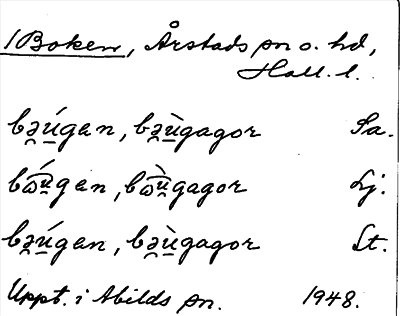 1 Boken, Årstads sn o. hd,
Hall. l.
bə̯ú̱gan, bə̯ù̱gagor Sa.
bω͡ú̱gen, bω͡ù̱gagor Lj.
bə̯ú̱gen, bə̯ù̱gagor St.
Uppt. i Abilds sn. 1948.